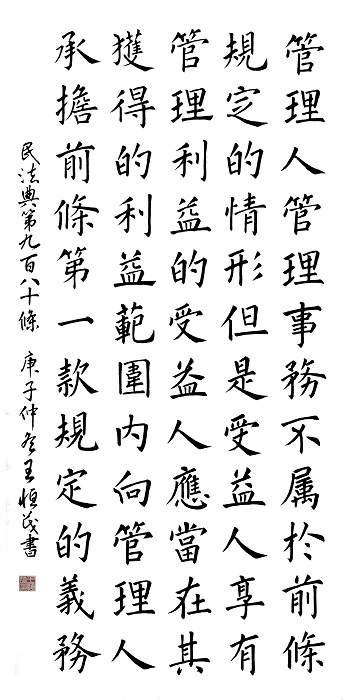 管理人管理事務不属於前條
規定的情形但是受益人享有
管理利益的受益人應當在其
獲得的利益範圍内向管理人
承擔前條第一款規定的義務
民法典第九百八十條 庚子仲冬王恒茂書